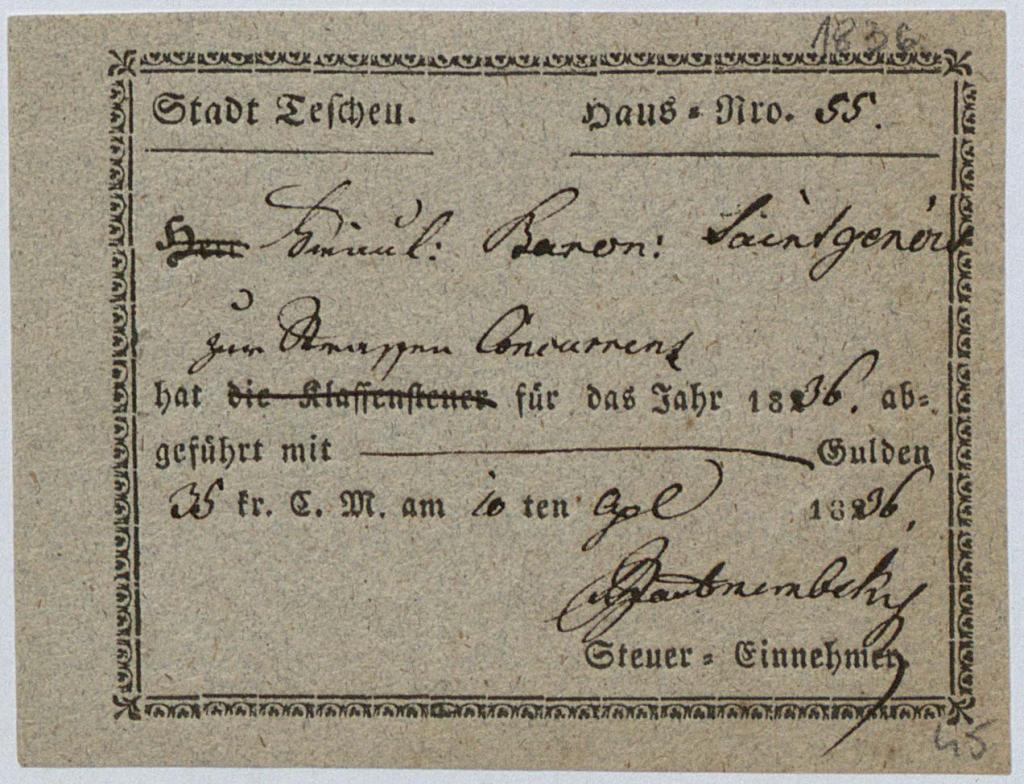 1836
Stadt Teschen. Haus = Nro. 55.
Herr Baron: Saintgenois
zur Strassen Concurrenz
hat die Klassensteuer für das Jahr 1836. ab=
geführt mit Gulden
35 kr. C. M. am 10 ten Apl 1836.
Steuer = Einnehmer.
45